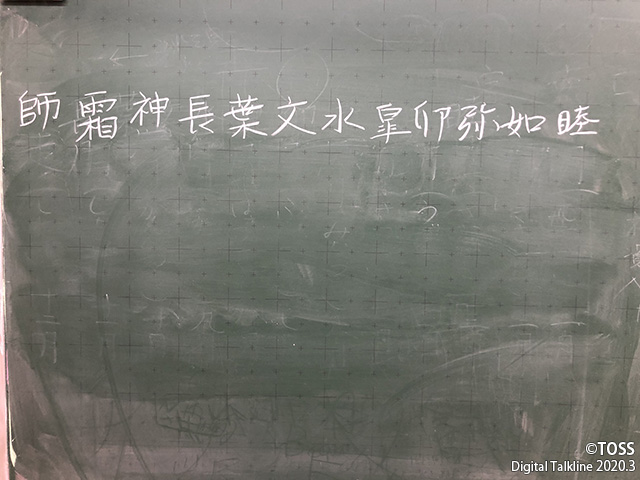 師霜神長葉文水皐卯弥如睦
つ
©TOSS
Digital Talkline 2020.3